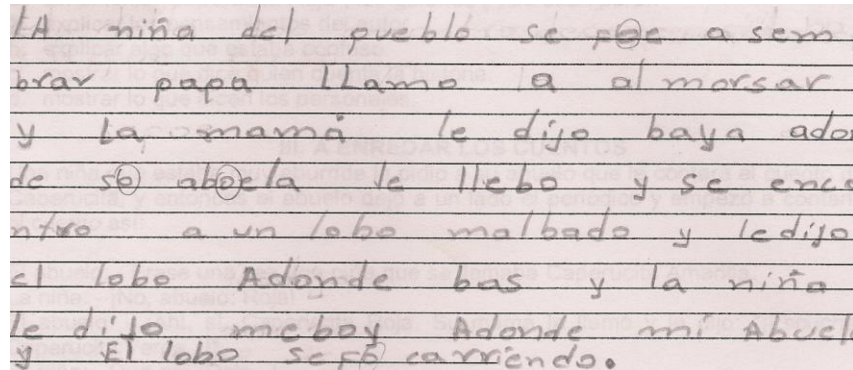 LA niña del pueblo se poe a sem
brar papa llamo la al morsar
y La mamá le dijo baya adon
de so aboela le llebo y se enco
ntro a un lobo malbado y ledijo
el lobo Adonde bas y la niña
le dijo meboy Adonde mi Abuela
y El lobo sefo carriendo.